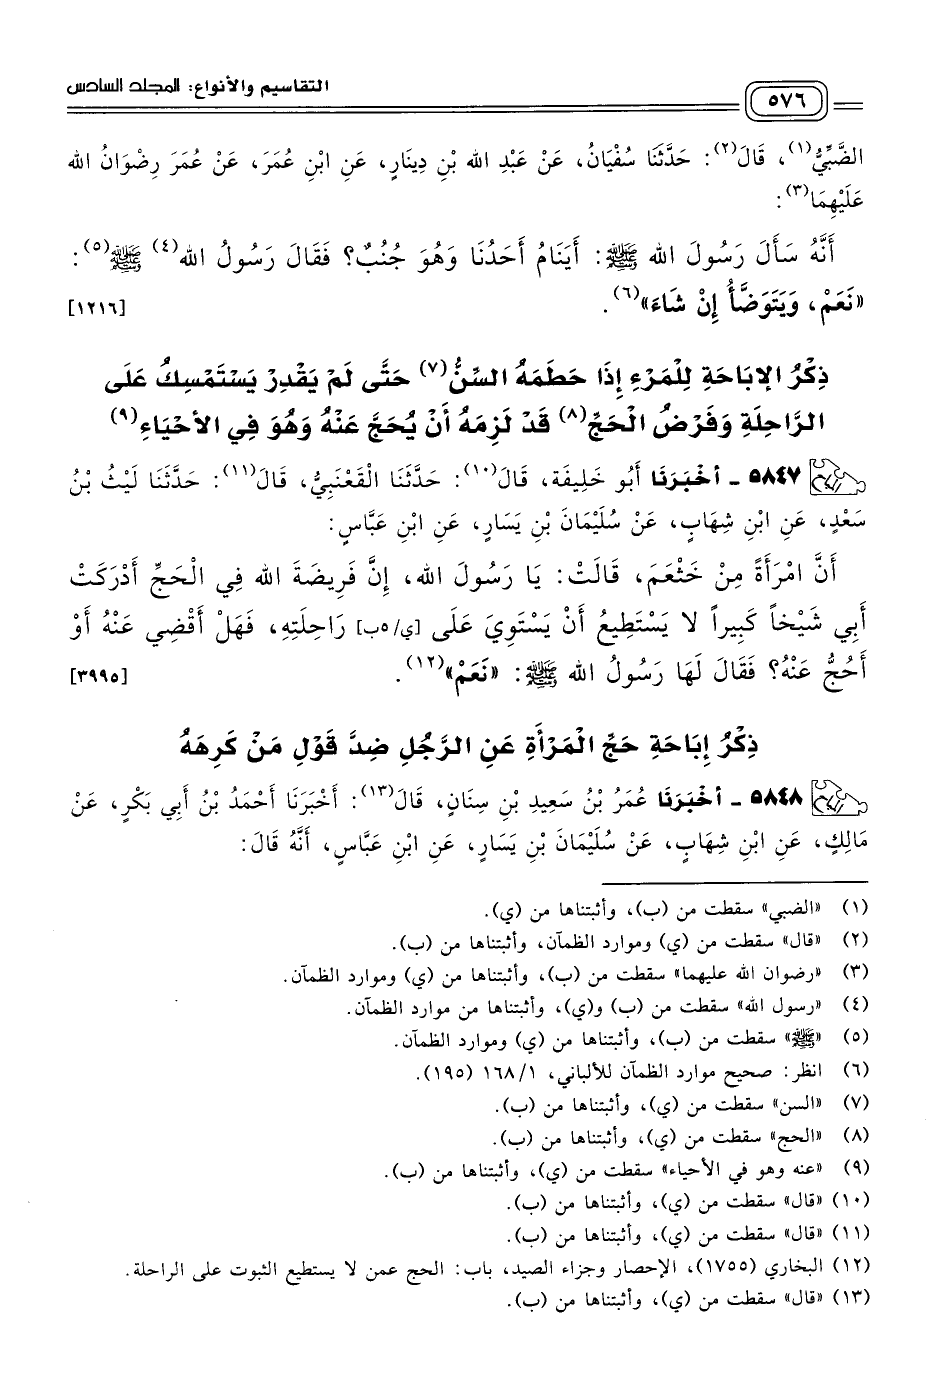 التقاسيم والأنواع: المجلد السادس
٥٧٦
الضَّبِّيُّ(١)، قَالَ(٢): حَدَّثَنَا سُفْيَانُ، عَنْ عَبْدِ الله بْنِ دِينَارٍ، عَنِ ابْنِ عُمَرَ، عَنْ عُمَرَ رِضْوَانُ الله
عَلَيْهِمَا(٣):
أَنَّهُ سَأَلَ رَسُولَ الله ﷺ: أَيَنَامُ أَحَدُنَا وَهُوَ جُنُبٌ؟ فَقَالَ رَسُولُ الله(٤) ﷺ(٥):
«نَعَمْ، وَيَتَوَضَّأُ إِنْ شَاءَ»(٦). [١٢١٦]
ذِكْرُ الإبَاحَةِ لِلْمَرْءِ إِذَا حَطَمَهُ السِّنُّ(٧) حَتَّى لَمْ يَقْدِرْ يَسْتَمْسِكُ عَلَى
الرَّاحِلَةِ وَفَرْضُ الْحَجِّ(٨) قَدْ لَزِمَهُ أَنْ يُحَجَّ عَنْهُ وَهُوَ فِي الأَحْيَاءِ(٩)
٥٨٤٧ - أَخْبَرَنَا أَبُو خَلِيفَة، قَالَ(١٠): حَدَّثَنَا الْقَعْنَبِيُّ، قَالَ(١١): حَدَّثَنَا لَيْثُ بْنُ
سَعْدٍ، عَنِ ابْنِ شِهَابٍ، عَنْ سُلَيْمَانَ بْنِ يَسَارٍ، عَنِ ابْنِ عَبَّاسٍ:
أَنَّ امْرَأَةً مِنْ خَثْعَمَ، قَالَتْ: يَا رَسُولَ الله، إِنَّ فَرِيضَةَ الله فِي الْحَجِّ أَدْرَكَتْ
أَبِي شَيْخاً كَبِيراً لا يَسْتَطِيعُ أَنْ يَسْتَوِيَ عَلَى [ي/٥ب] رَاحِلَتِهِ، فَهَلْ أَقْضِي عَنْهُ أَوْ
أَحُجُّ عَنْهُ؟ فَقَالَ لَهَا رَسُولُ الله ﷺ: «نَعَمْ»(١٢). [٣٩٩٥]
ذِكْرُ إِبَاحَةِ حَجِّ الْمَرْأَةِ عَنِ الرَّجُلِ ضِدَّ قَوْلِ مَنْ كَرِهَهُ
٥٨٤٨ - أَخْبَرَنَا عُمَرُ بْنُ سَعِيدِ بْنِ سِنَانٍ، قَالَ(١٣): أَخْبَرَنَا أَحْمَدُ بْنُ أَبِي بَكْرٍ، عَنْ
مَالِكٍ، عَنِ ابْنِ شِهَابٍ، عَنْ سُلَيْمَانَ بْنِ يَسَارٍ، عَنِ ابْنِ عَبَّاسٍ، أَنَّهُ قَالَ:
(١) «الضبي» سقطت من (ب)، وأثبتناها من (ي).
(٢) «قال» سقطت من (ي) وموارد الظمآن، وأثبتناها من (ب).
(٣) «رضوان الله عليهما» سقطت من (ب)، وأثبتناها من (ي) وموارد الظمآن.
(٤) «رسول الله» سقطت من (ب) و(ي)، وأثبتناها من موارد الظمآن.
(٥) «ﷺ» سقطت من (ب)، وأثبتناها من (ي) وموارد الظمآن.
(٦) انظر: صحيح موارد الظمآن للألباني، ١/١٦٨ (١٩٥).
(٧) «السن» سقطت من (ي)، وأثبتناها من (ب).
(٨) «الحج» سقطت من (ي)، وأثبتناها من (ب).
(٩) «عنه وهو في الأحياء» سقطت من (ي)، وأثبتناها من (ب).
(١٠) «قال» سقطت من (ي)، وأثبتناها من (ب).
(١١) «قال» سقطت من (ي)، وأثبتناها من (ب).
(١٢) البخاري (١٧٥٥)، الإحصار وجزاء الصيد، باب: الحج عمن لا يستطيع الثبوت على الراحلة.
(١٣) «قال» سقطت من (ي)، وأثبتناها من (ب).